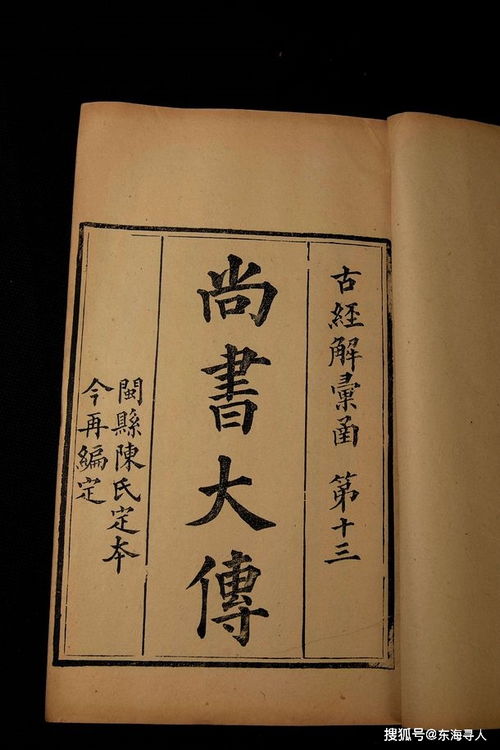 古經解彙函 第十三
尚書大傳
閩縣陳氏定本
今再編定
搜狐号@东海寻人